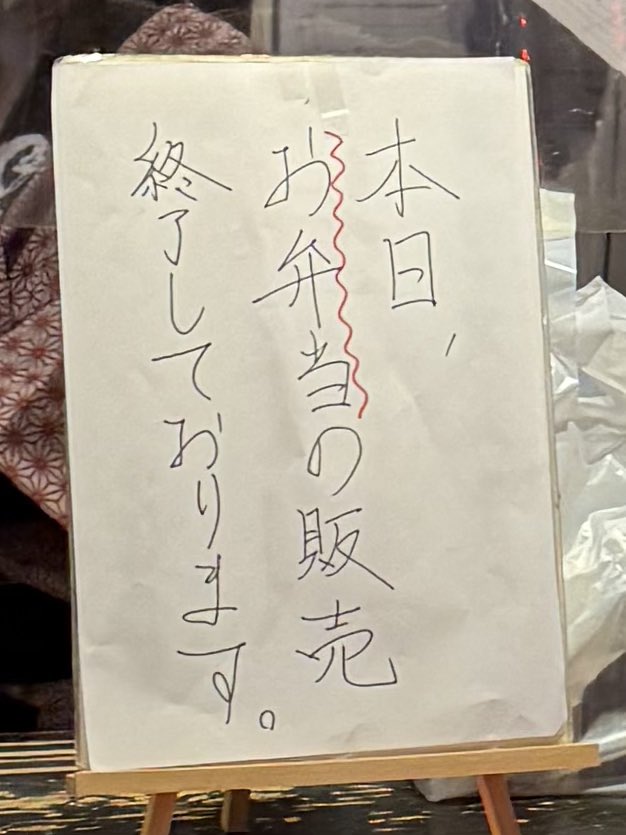 本日、
お弁当の販売
終了しております。